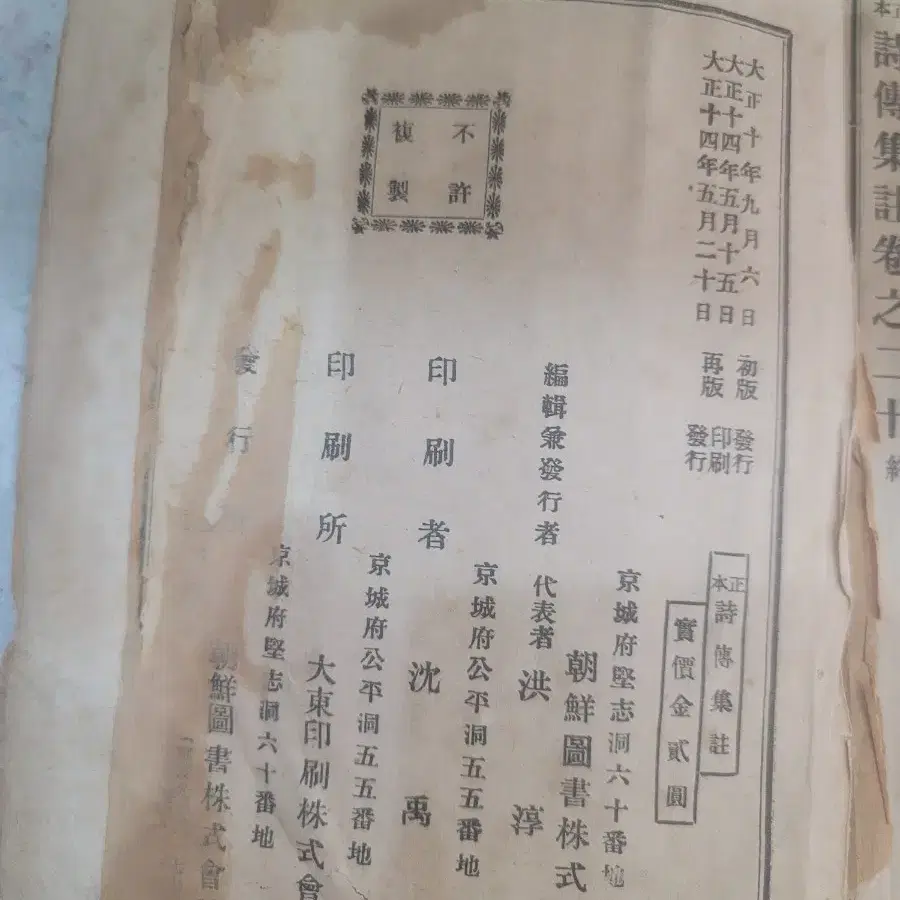 正本詩傳集註卷之二十 終
大正十年九月六日 初版發行
大正十四年五月十五日 再版印刷
大正十四年五月二十日 發行
正本 詩傳集註
實價金貳圓
不許複製
京城府堅志洞六十番地
編輯兼發行者 朝鮮圖書株式
代表者 洪淳
京城府公平洞五五番地
印刷者 沈禹
京城府公平洞五五番地
印刷所 大東印刷株式會
京城府堅志洞六十番地
發行 朝鮮圖書株式會